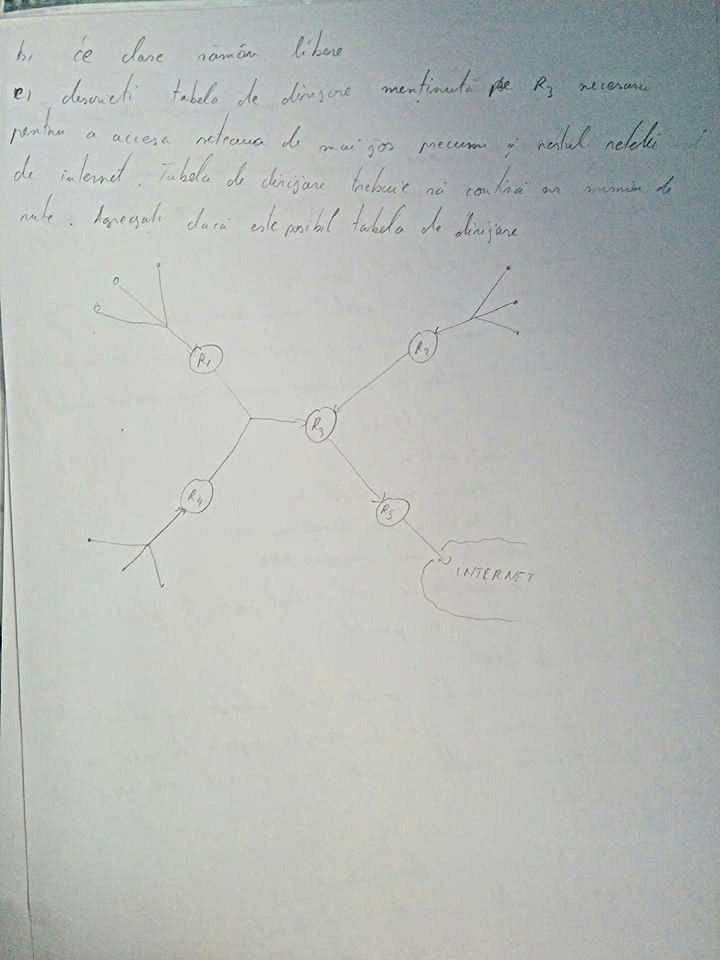 b, ce clase rămân libere
c, descrieți tabela de dirijare menținută pe R3 necesară
pentru a accesa rețeaua de mai jos precum și restul rețelei
de internet. Tabela de dirijare trebuie să conțină un număr de
rute. Agregați dacă este posibil tabela de dirijare
R1
R2
R3
R4
R5
INTERNET